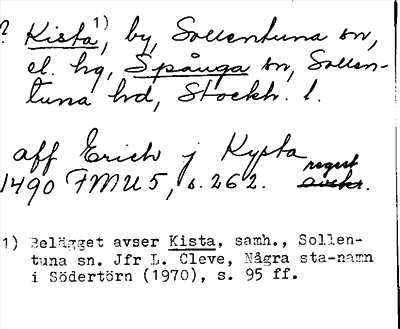 ? Kista 1), by, Sollentuna sn,
el. hg, Spånga sn, Sollen-
tuna hd, Stockh. l.
aff Erich j Kysta
regest
1490 FMU 5, s. 262. avskr.
1) Belägget avser Kista, samh., Sollen-
tuna sn. Jfr L. Cleve, Några sta-namn
i Södertörn (1970), s. 95 ff.